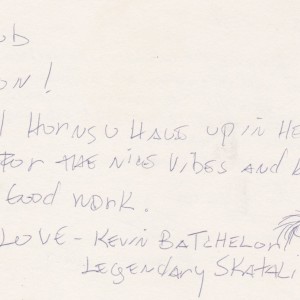 ub
on!
Hornsu Have up in He
For the nice vibes and
Good work.
Love - Kevin Batchelor
Legendary Skatali